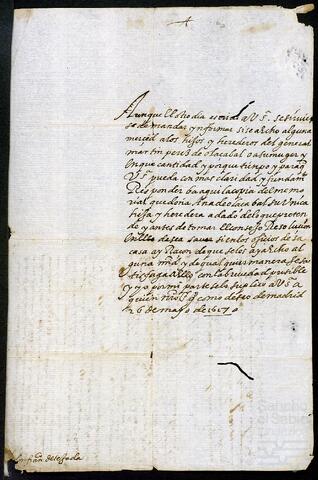 Aunque El otro dia escrivi a V.S. se sirviese
se de mandar ynformar si se a echo alguna
merced a los hijos y herederos del general
martin perez de olacabal o a su muger y
En que cantidad y porque tiempo y para q
V.S. pueda con mas claridad y fundam.
Responder ba aqui la copia del memo
rial que doña Ana de olacabal su Unica
hija y heredera a dado del que pretende
de y antes de tomar El consejo Resolucion
En ello desea saver si en los oficios de la
casa ay Raçon de que se les aya echo al
guna md y de qualquier manera Se sa
tisfaga a Ello con la brevedad posible
y yo por mi parte se lo suplico a V.S. a
quien nro S. g. como deseo de madrid
26 de mayo de 1607
Sanctho el Sabio